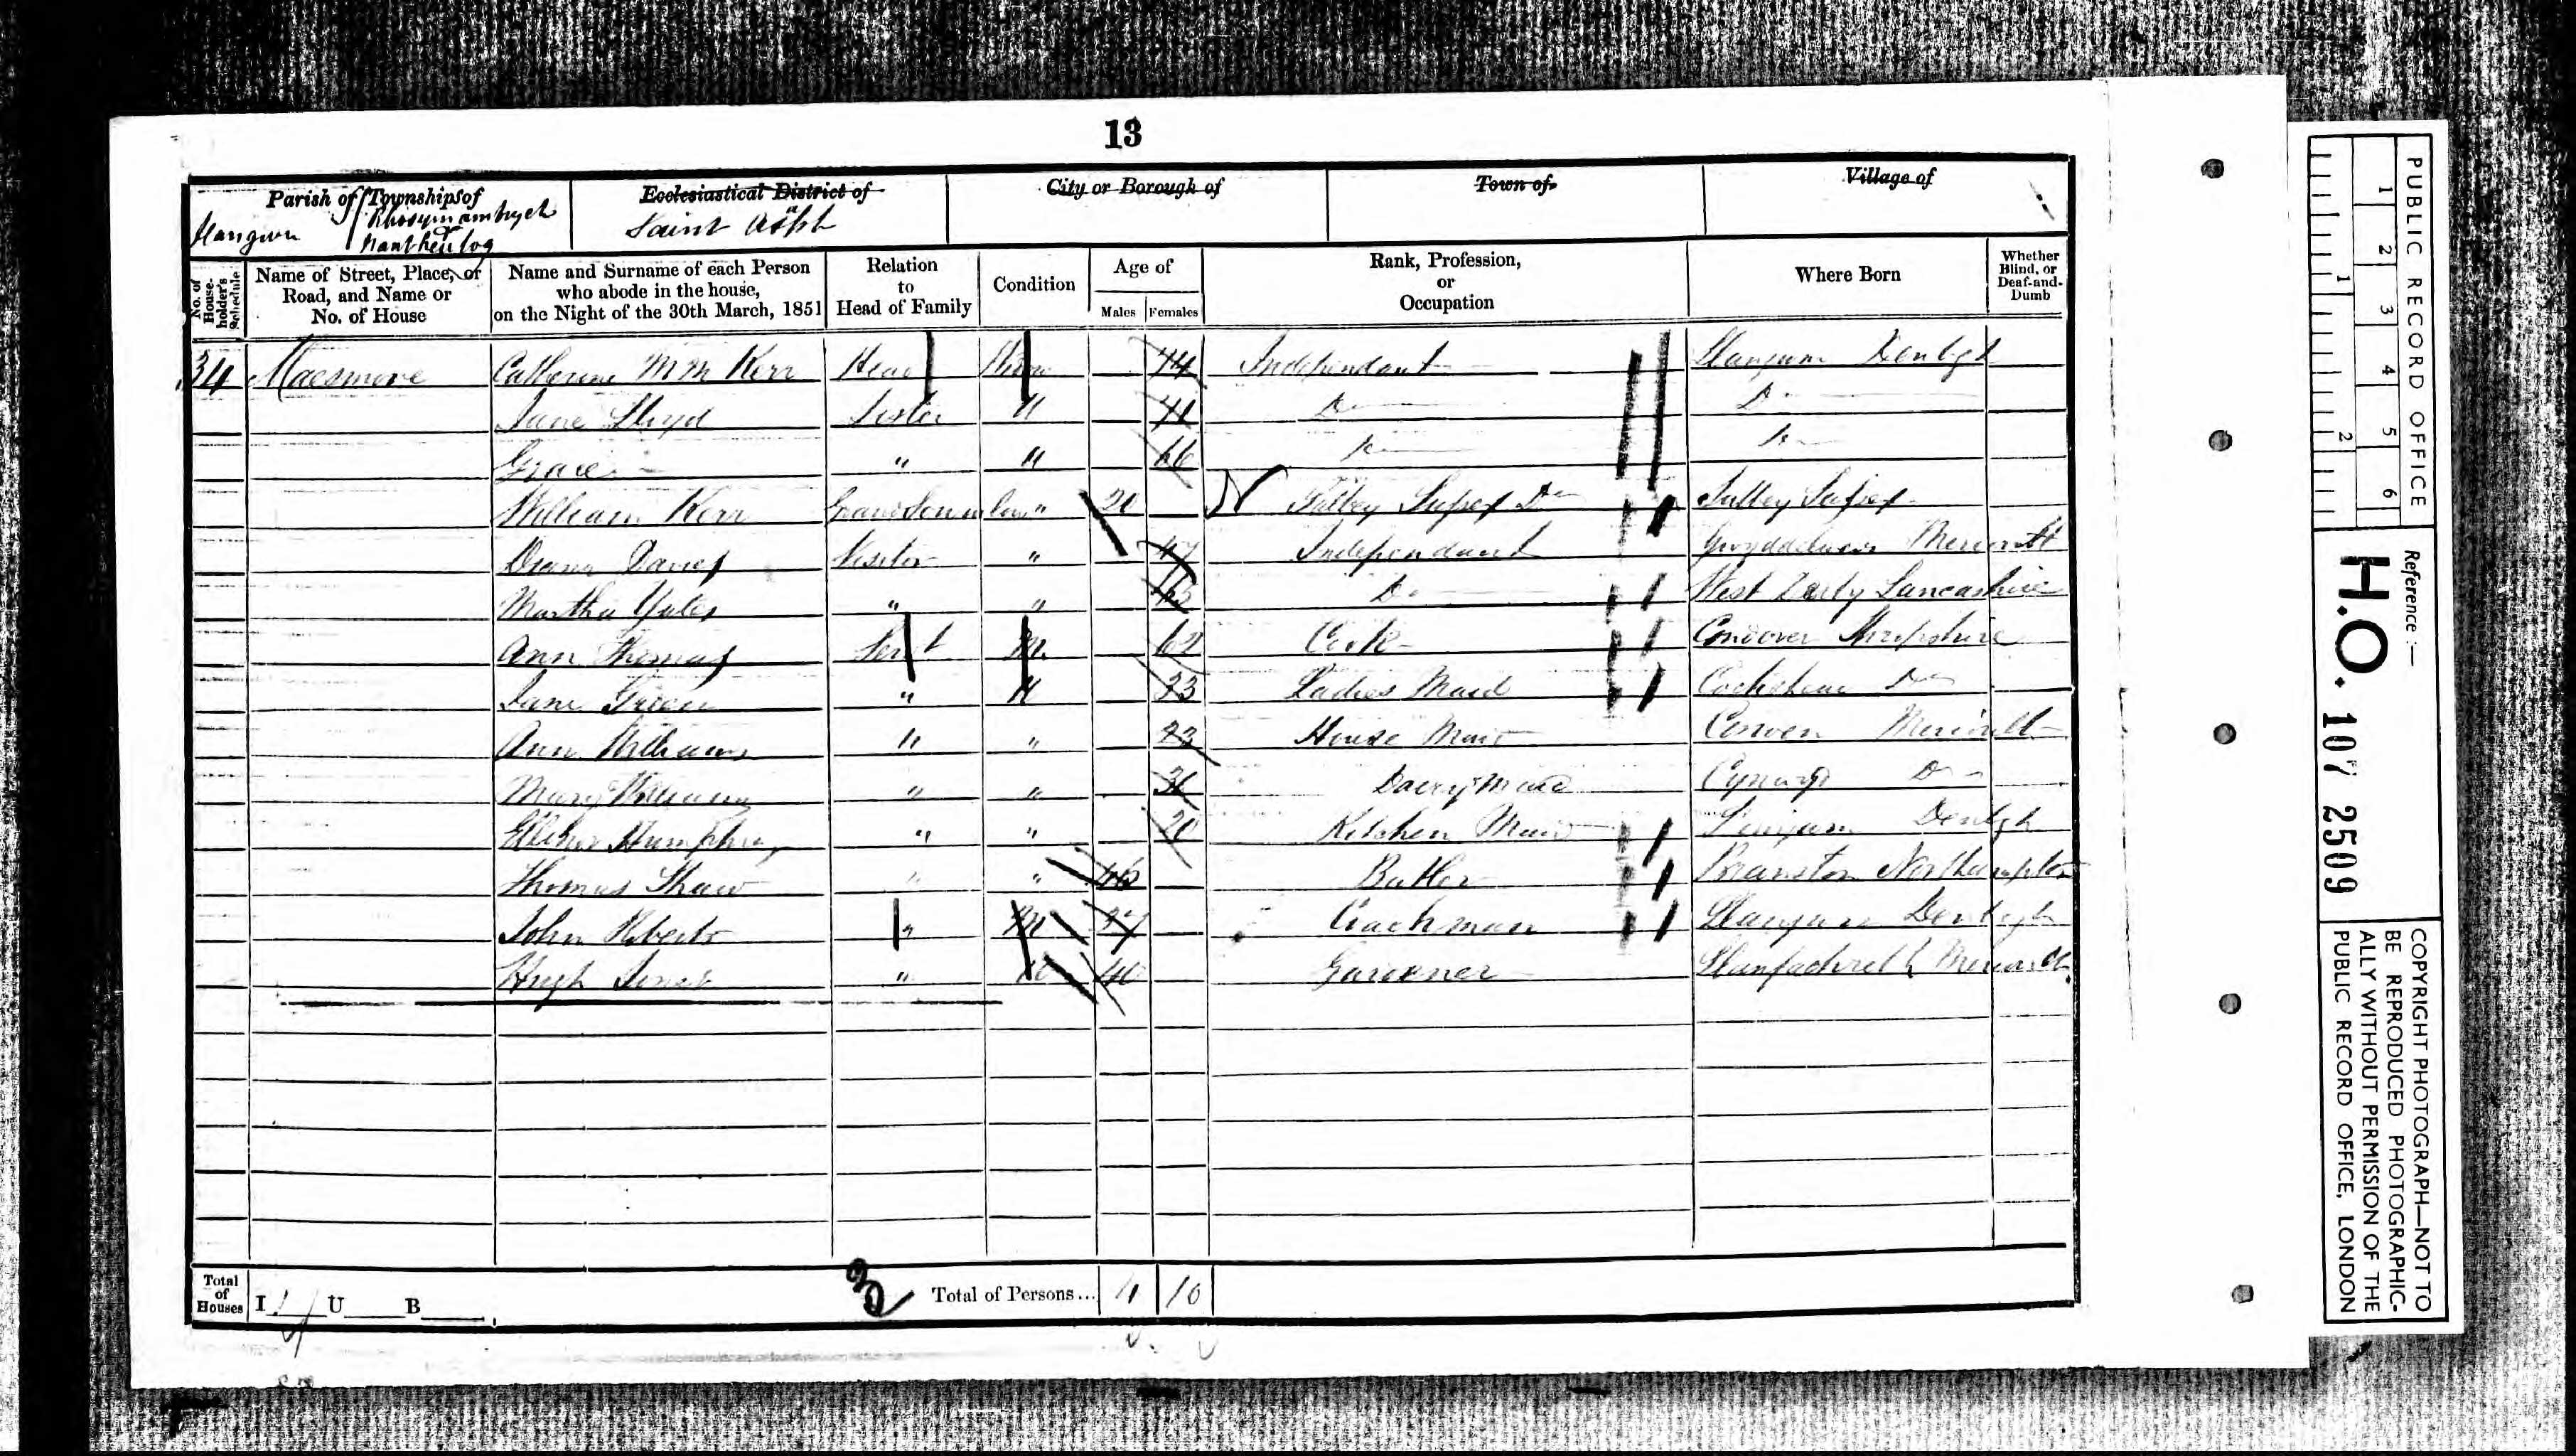 13
Parish of Townships of
Llangwm
Ecclesiastical District of
Saint Asaph
City or Borough of
Town of
Village of
No. of House-holder's Schedule
Name of Street, Place, or Road, and Name or No. of House
Name and Surname of each Person who abode in the house, on the Night of the 30th March, 1851
Relation to Head of Family
Condition
Age of
Males Females
Rank, Profession, or Occupation
Where Born
Whether Blind, or Deaf-and-Dumb
34 Maesmore Catherine M M Kerr Head Widow 74 Independant Llangwm Denbigh
Jane Lloyd Sister U 71 Do Do
Grace " " 66 Do Do
William Kerr Grandson in law " 20
Davies Visitor " 47 Independant
Martha Yates " " Do West Derby Lancashire
Ann Thomas Servt M 62 Cook Condover Shropshire
Jane Green " U 33 Ladies Maid Do
Ann Williams " " 23 House Maid Corwen Merioneth
Mary Williams " " Dairy Maid Do
Humphrey " " 20 Kitchen Maid Llangwm Denbigh
Thomas Shaw " " Butler Northampton
John Roberts " M 27 Coachman Llangwm Denbigh
Hugh " 40 Gardener Llanfachreth Merioneth
Total of Houses I 1 U B
Total of Persons... 4 10
PUBLIC RECORD OFFICE
1 2 3 4 5 6
1 2
Reference :—
H.O. 107 2509
COPYRIGHT PHOTOGRAPH—NOT TO BE REPRODUCED PHOTOGRAPHIC-
ALLY WITHOUT PERMISSION OF THE
PUBLIC RECORD OFFICE, LONDON